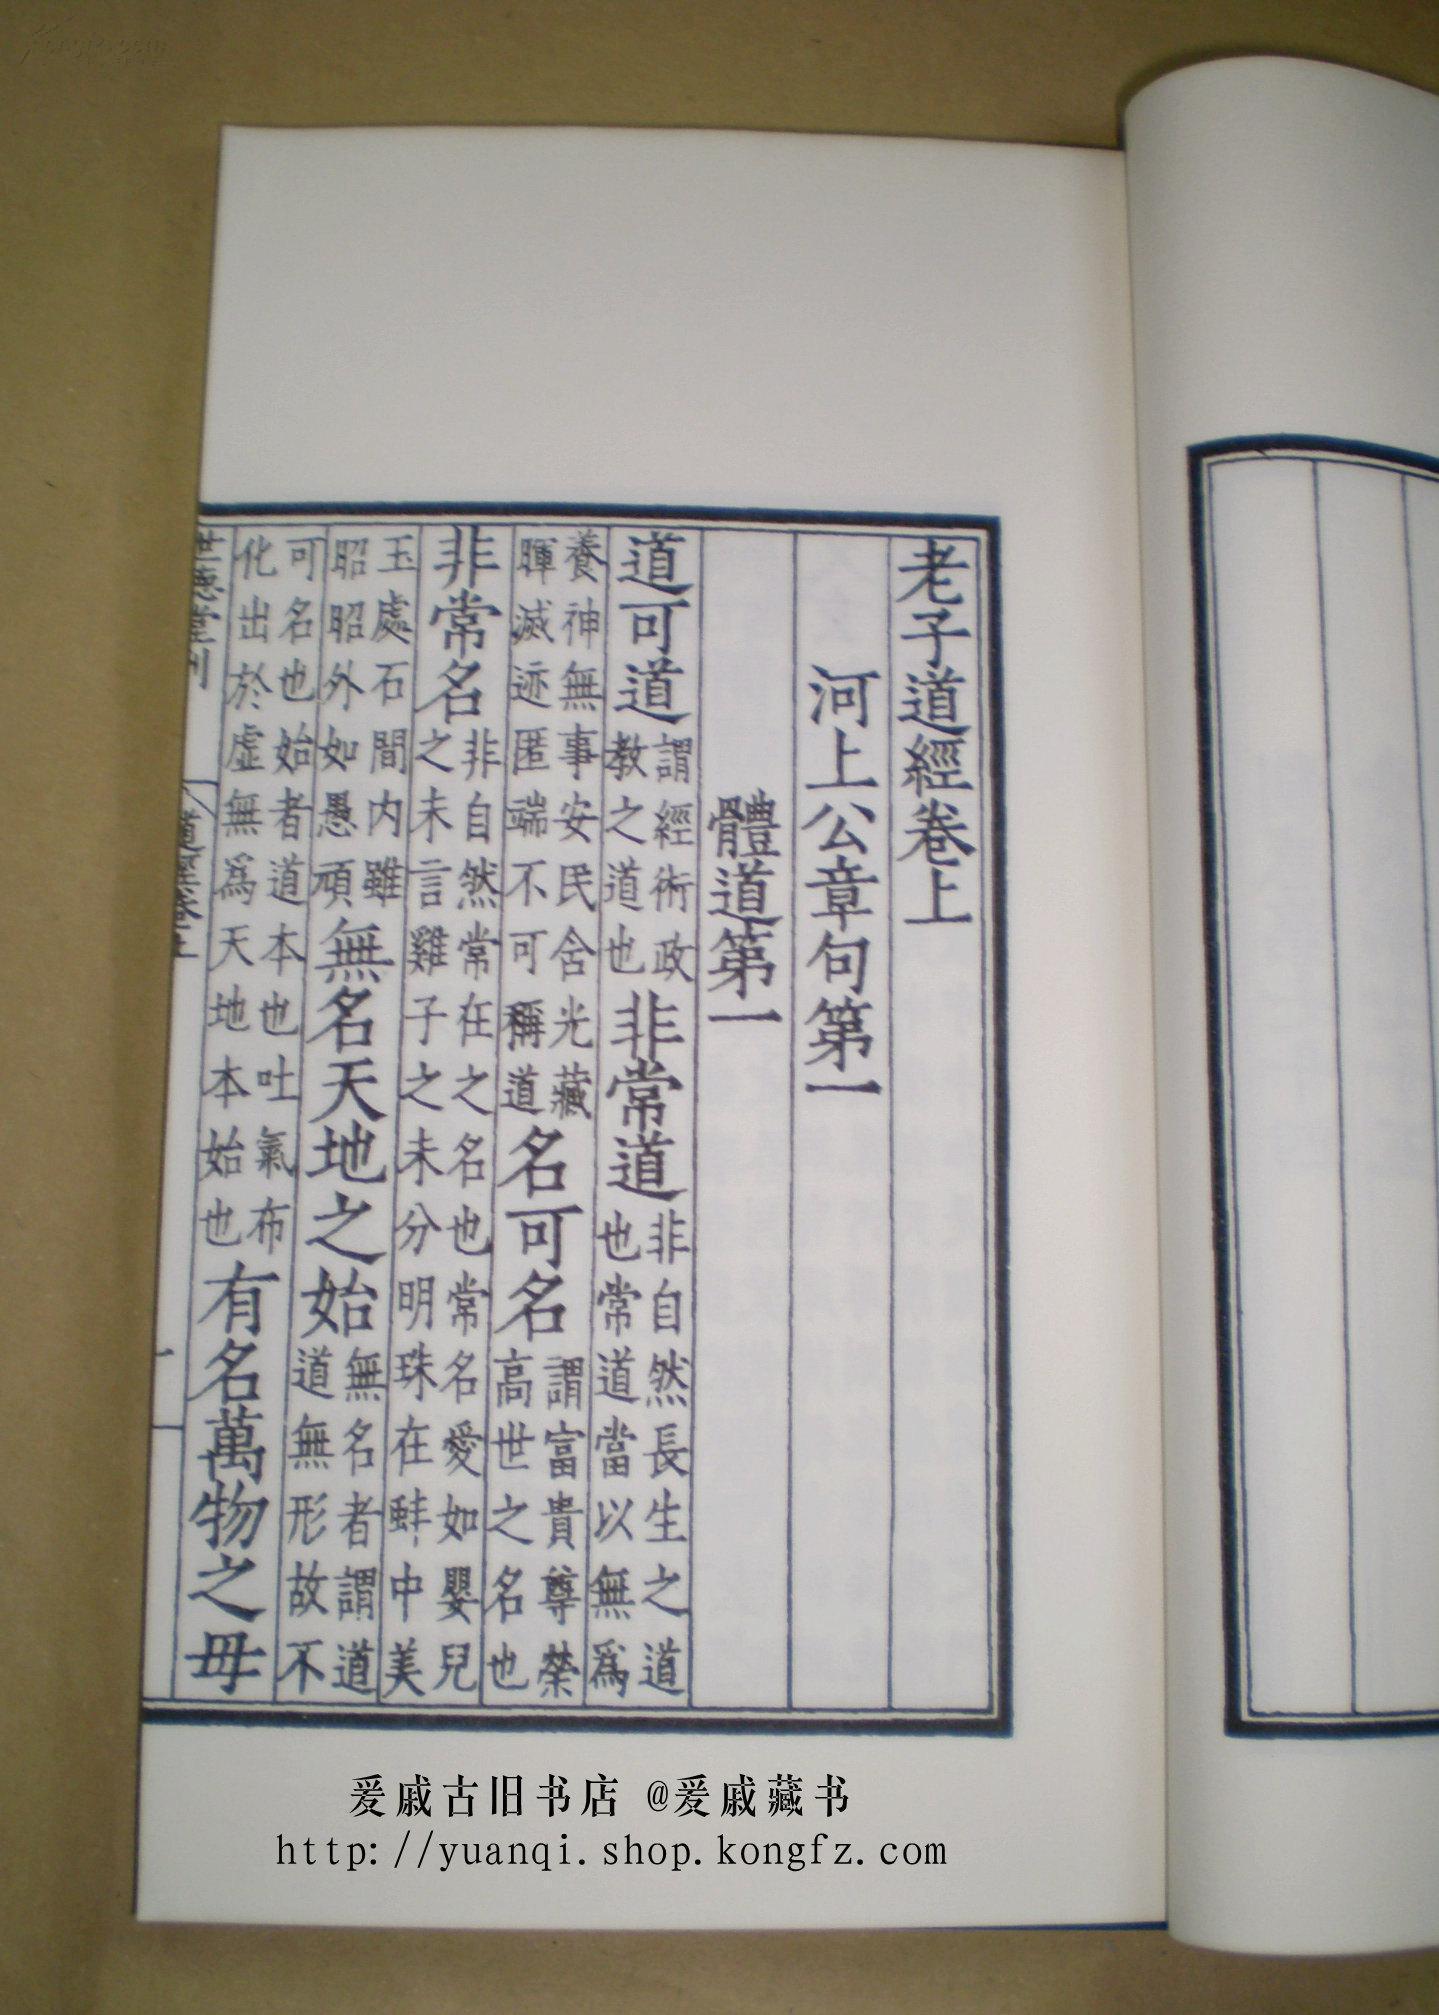 老子道經卷上
河上公章句第一
體道第一
道可道謂經術政教之道也非常道非自然長生之道也常道當以無爲
養神無事安民含光藏暉滅迹匿端不可稱道名可名謂富貴尊榮高世之名也
非常名非自然常在之名也常名愛如嬰兒之未言雞子之未分明珠在蚌中美
玉處石間内雖昭昭外如愚頑無名天地之始無名者謂道道無形故不
可名也始者道本也吐氣布化出於虛無爲天地本始也有名萬物之母
世德堂刊
道經卷上
一
爰戚古旧书店 @爰戚藏书
http://yuanqi.shop.kongfz.com